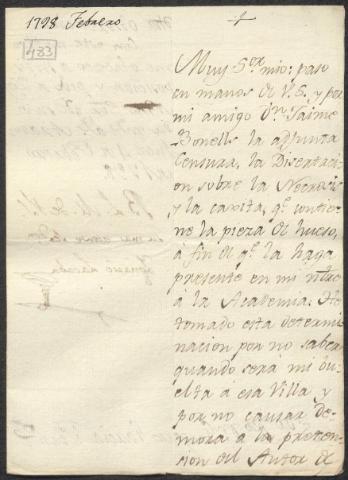 1798 Febrero
483
Muy S.or mio: paso
en manos de V.S. y por
mi amigo Dn. Jaime
Bonells la adjunta
Censura, la Disertaci-
on sobre la Necrosis
y la caxita, q.e contie-
ne la pieza de hueso,
á fin de q.e la haga
presente en mi nbre
á la Academia. He
tomado esta determi-
nacion por no saber
quando será mi bu-
elta á esa Villa y
por no causar de-
mora á la preten-
sion del Autor de